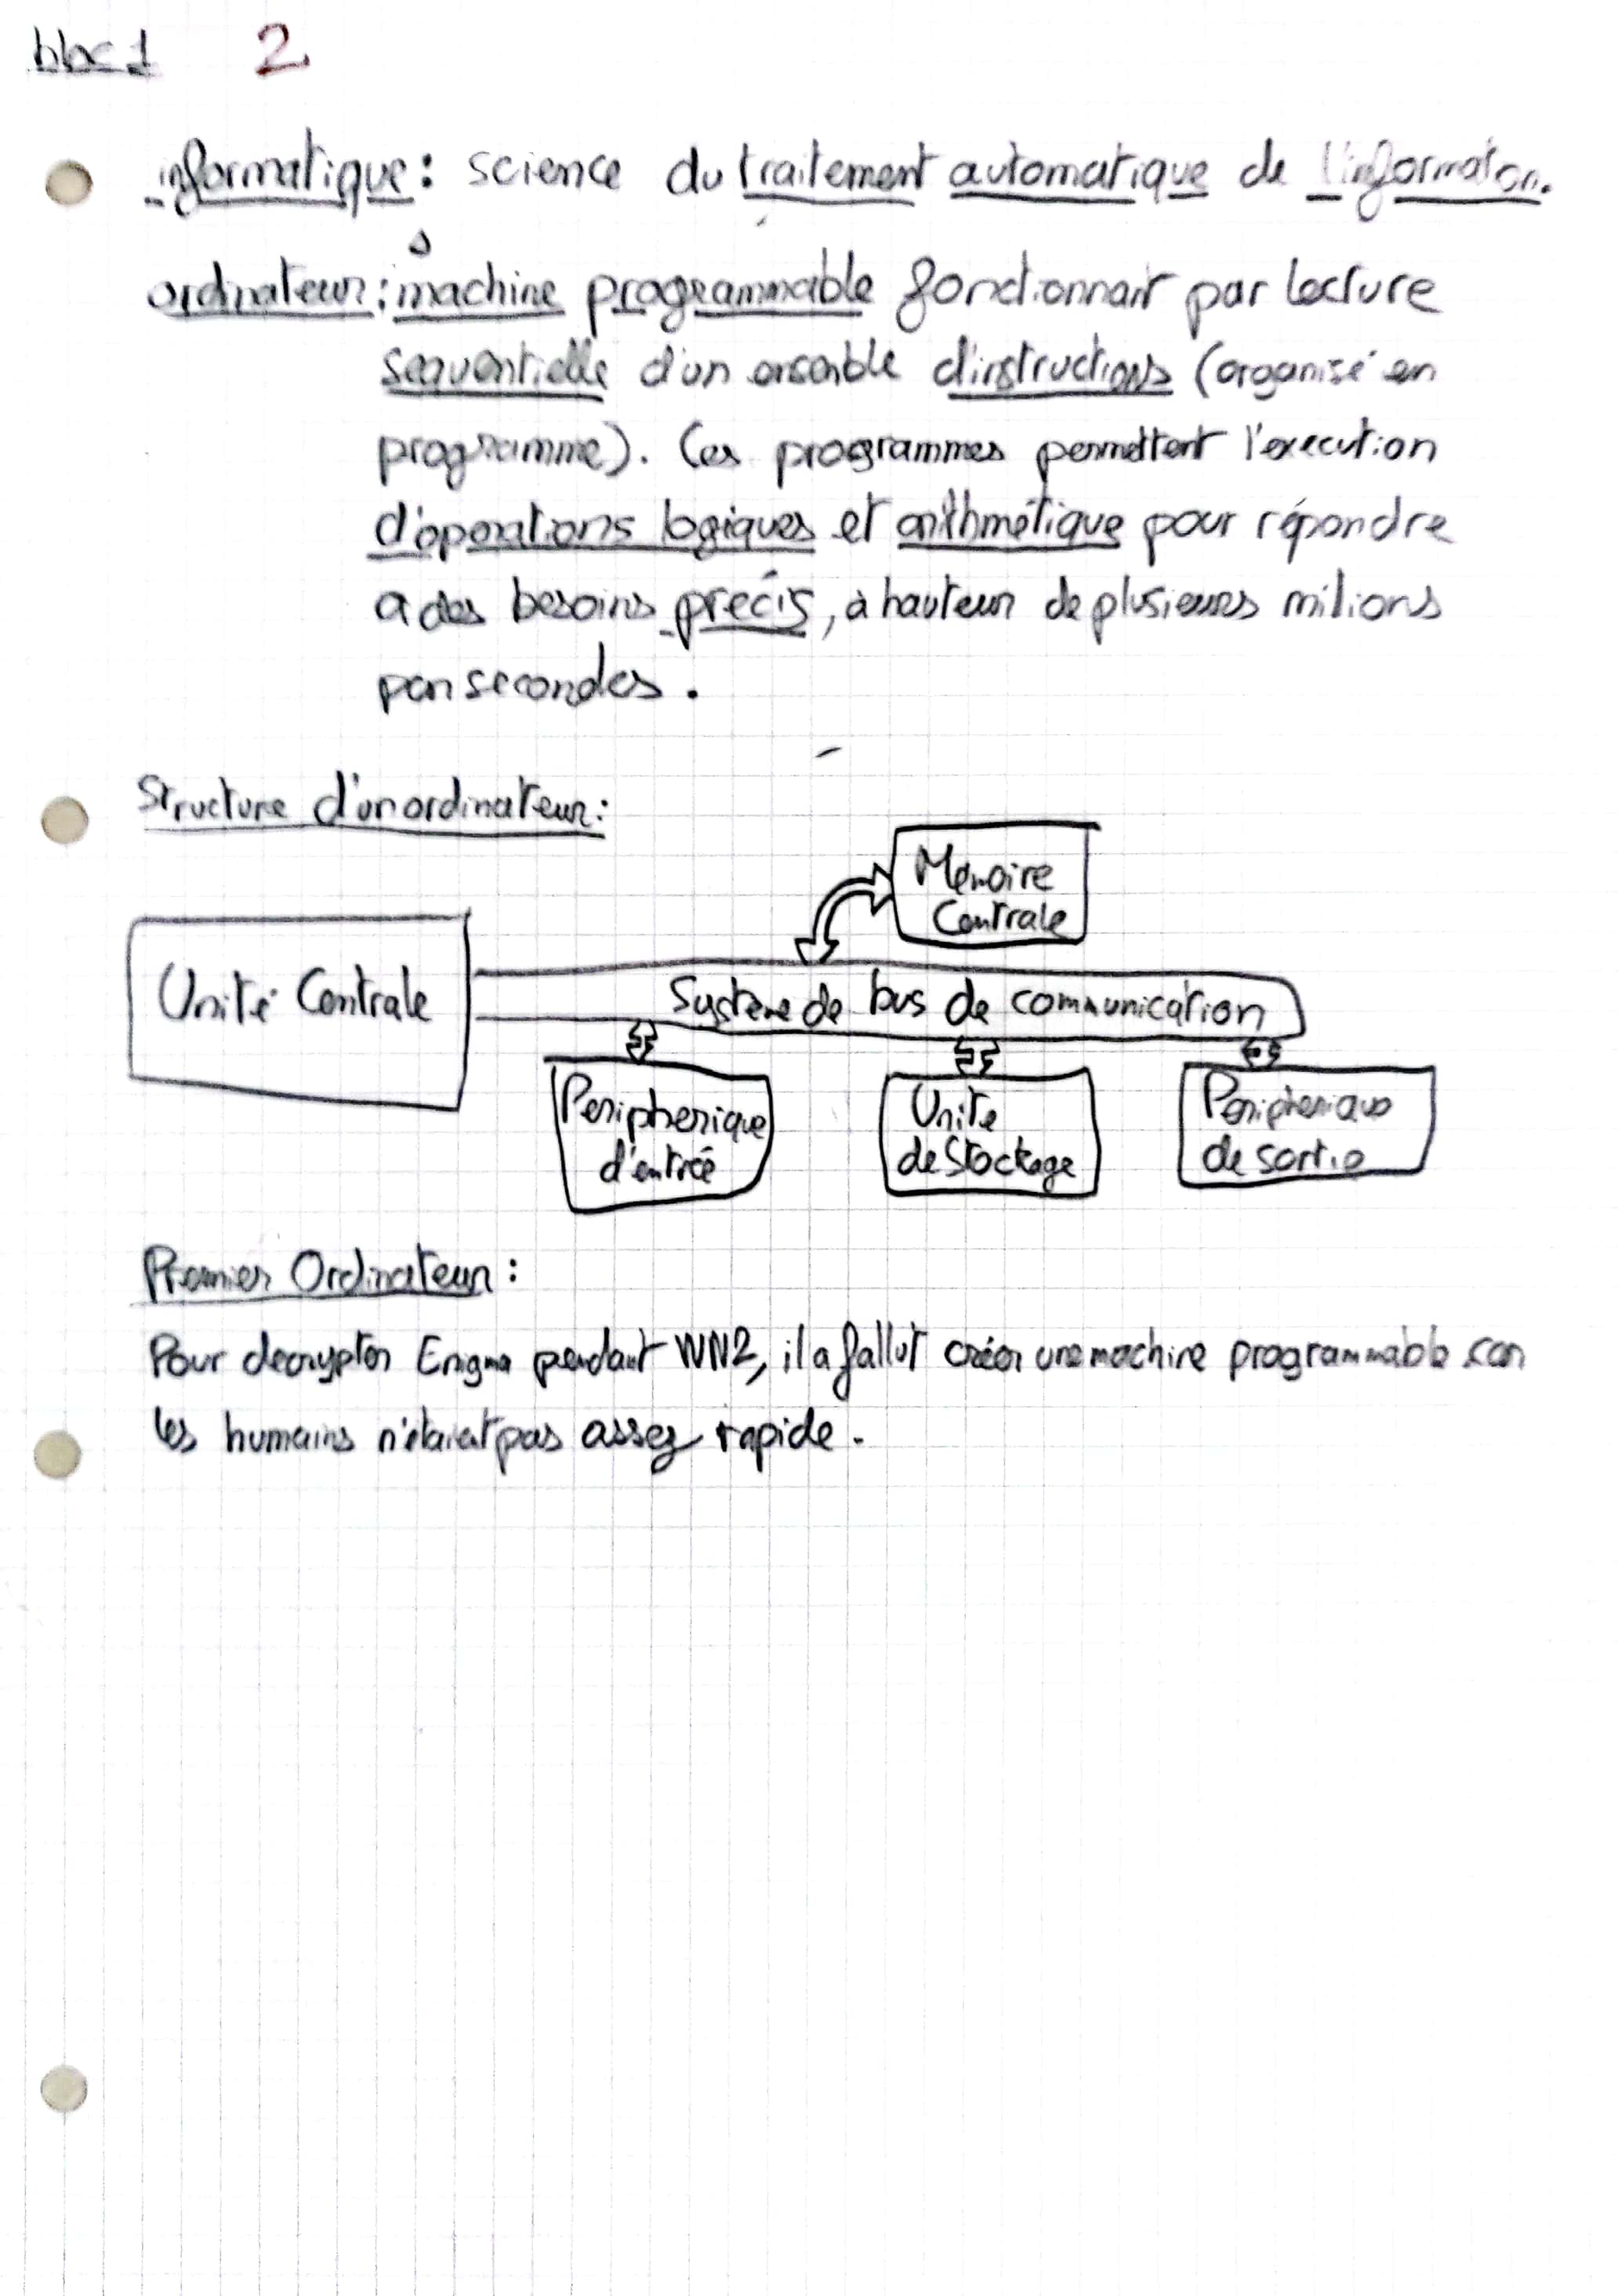 bloc 1 2
informatique : science du traitement automatique de l'information.
ordinateur : machine programmable fonctionnant par lecture
sequentielle d'un ensemble d'instructions (organisé en
programme). Ces programmes permettent l'execution
d'opérations logiques et arithmétique pour répondre
a des besoins précis, à hauteur de plusieurs milions
par secondes.
Structure d'un ordinateur :
Mémoire
Centrale
Unité Centrale
Système de bus de communication
Peripherique
d'entrée
Unite
de Stockage
Peripherique
de sortie
Premier Ordinateur :
Pour decrypter Enigma pendant WW2, il a fallut créer une machine programmable car
les humains n'étaient pas assez rapide.